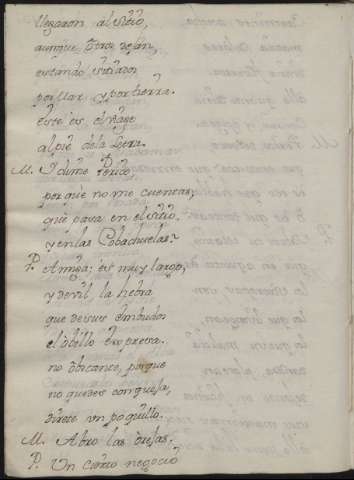 llegaron al sitio,
aunque otros dejan,
estando sitiados
por Mar, y por tierra.
este es, el viage
al pie de la Letra.
M. Y dime Perico,
por què no me cuentas,
què pasa en el sitio.
y en las Cobachuelas?
P. Amiga; es muy largo,
y devil la hebra
que de sus embudos
el obillo expresa.
no obstante, porque
no quedes con quexa,
direte un poquillo.
M. Abro las orejas.
P. Un cierto negocio